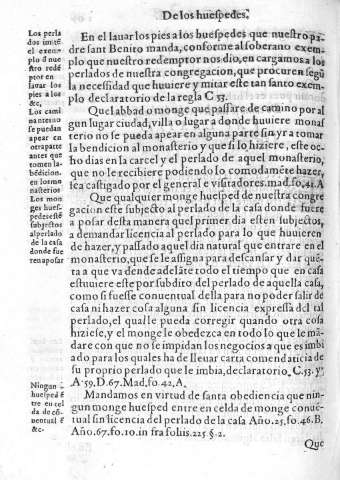 De los huespedes.
Los perla
dos imité
el exem-
plo d nue
stro redé
ptor en
lauar los
pies a los
&c,
Los cami
nantes no
se puedan
apear en
otra parte
antes que
tomen la-
bēdicion.
en los mo
nasterios
Los mon
ges hues-
pedes esté
subjectos
al perlado
de la casa
donde fue
ren a posar
Ningun
huesped é
tre en cel
da de có-
uentual é
&c.
En el lauar los pies a los huespedes que nuestro pa-
dre sant Benito manda, conforme al soberano exem-
plo que nuestro redemptor nos dio, en cargamos a los
perlados de nuestra congregacion, que procuren segū
la necessidad que huuiere y mitar este tan santo exem-
plo declaratorio de la regla C. 53.
Que l abbad o monge que passare de camino por al
gun lugar ciudad, villa o lugar a donde huuiere monas
terio no se pueda apear en alguna parte sin yr a tomar
la bendicion al monasterio y que si lo hiziere, este oc-
ho dias en la carcel y el perlado de aquel monasterio,
que no le recibiere podiendo lo comodaméte hazer,
sea castigado por el general e visitadores. mad. fo, 41. A
Que qualquier monge huesped de nuestra congre
gacion este subjecto al perlado de la casa donde fuere
a posar desta manera quel primer dia esten subjectos,
a demandar licencia al perlado para lo que huuieren
de hazer, y passado aquel dia natural que entrare en el
monasterio, que se le assigna para descansar y dar quē-
ta a que va dende adelāte todo el tiempo que en casa
estuuiere este por subdito del perlado de aquella casa,
como si fuesse conuentual della para no poder salir de
casa ni hazer cosa alguna sin licencia expressa del tal
perlado, el qual le pueda corregir quando otra cosa
hiziese, y el monge le obedezca en todo lo que le mā-
dare con que no se impidan los negocios a que es imbi
ado para los quales ha de lleuar carta comendaticia de
su proprio perlado que le imbia, declaratorio. C. 53. y,
A. 59. D. 67. Mad, fo. 42. A.
Mandamos en virtud de santa obediencia que nin-
gun monge huesped entre en celda de monge conuē-
tual sin licencia del perlado de la casa Año. 25, fo. 46. B.
Año. 67. fo. 10. in fra foliis. 225 §. 2.
Que